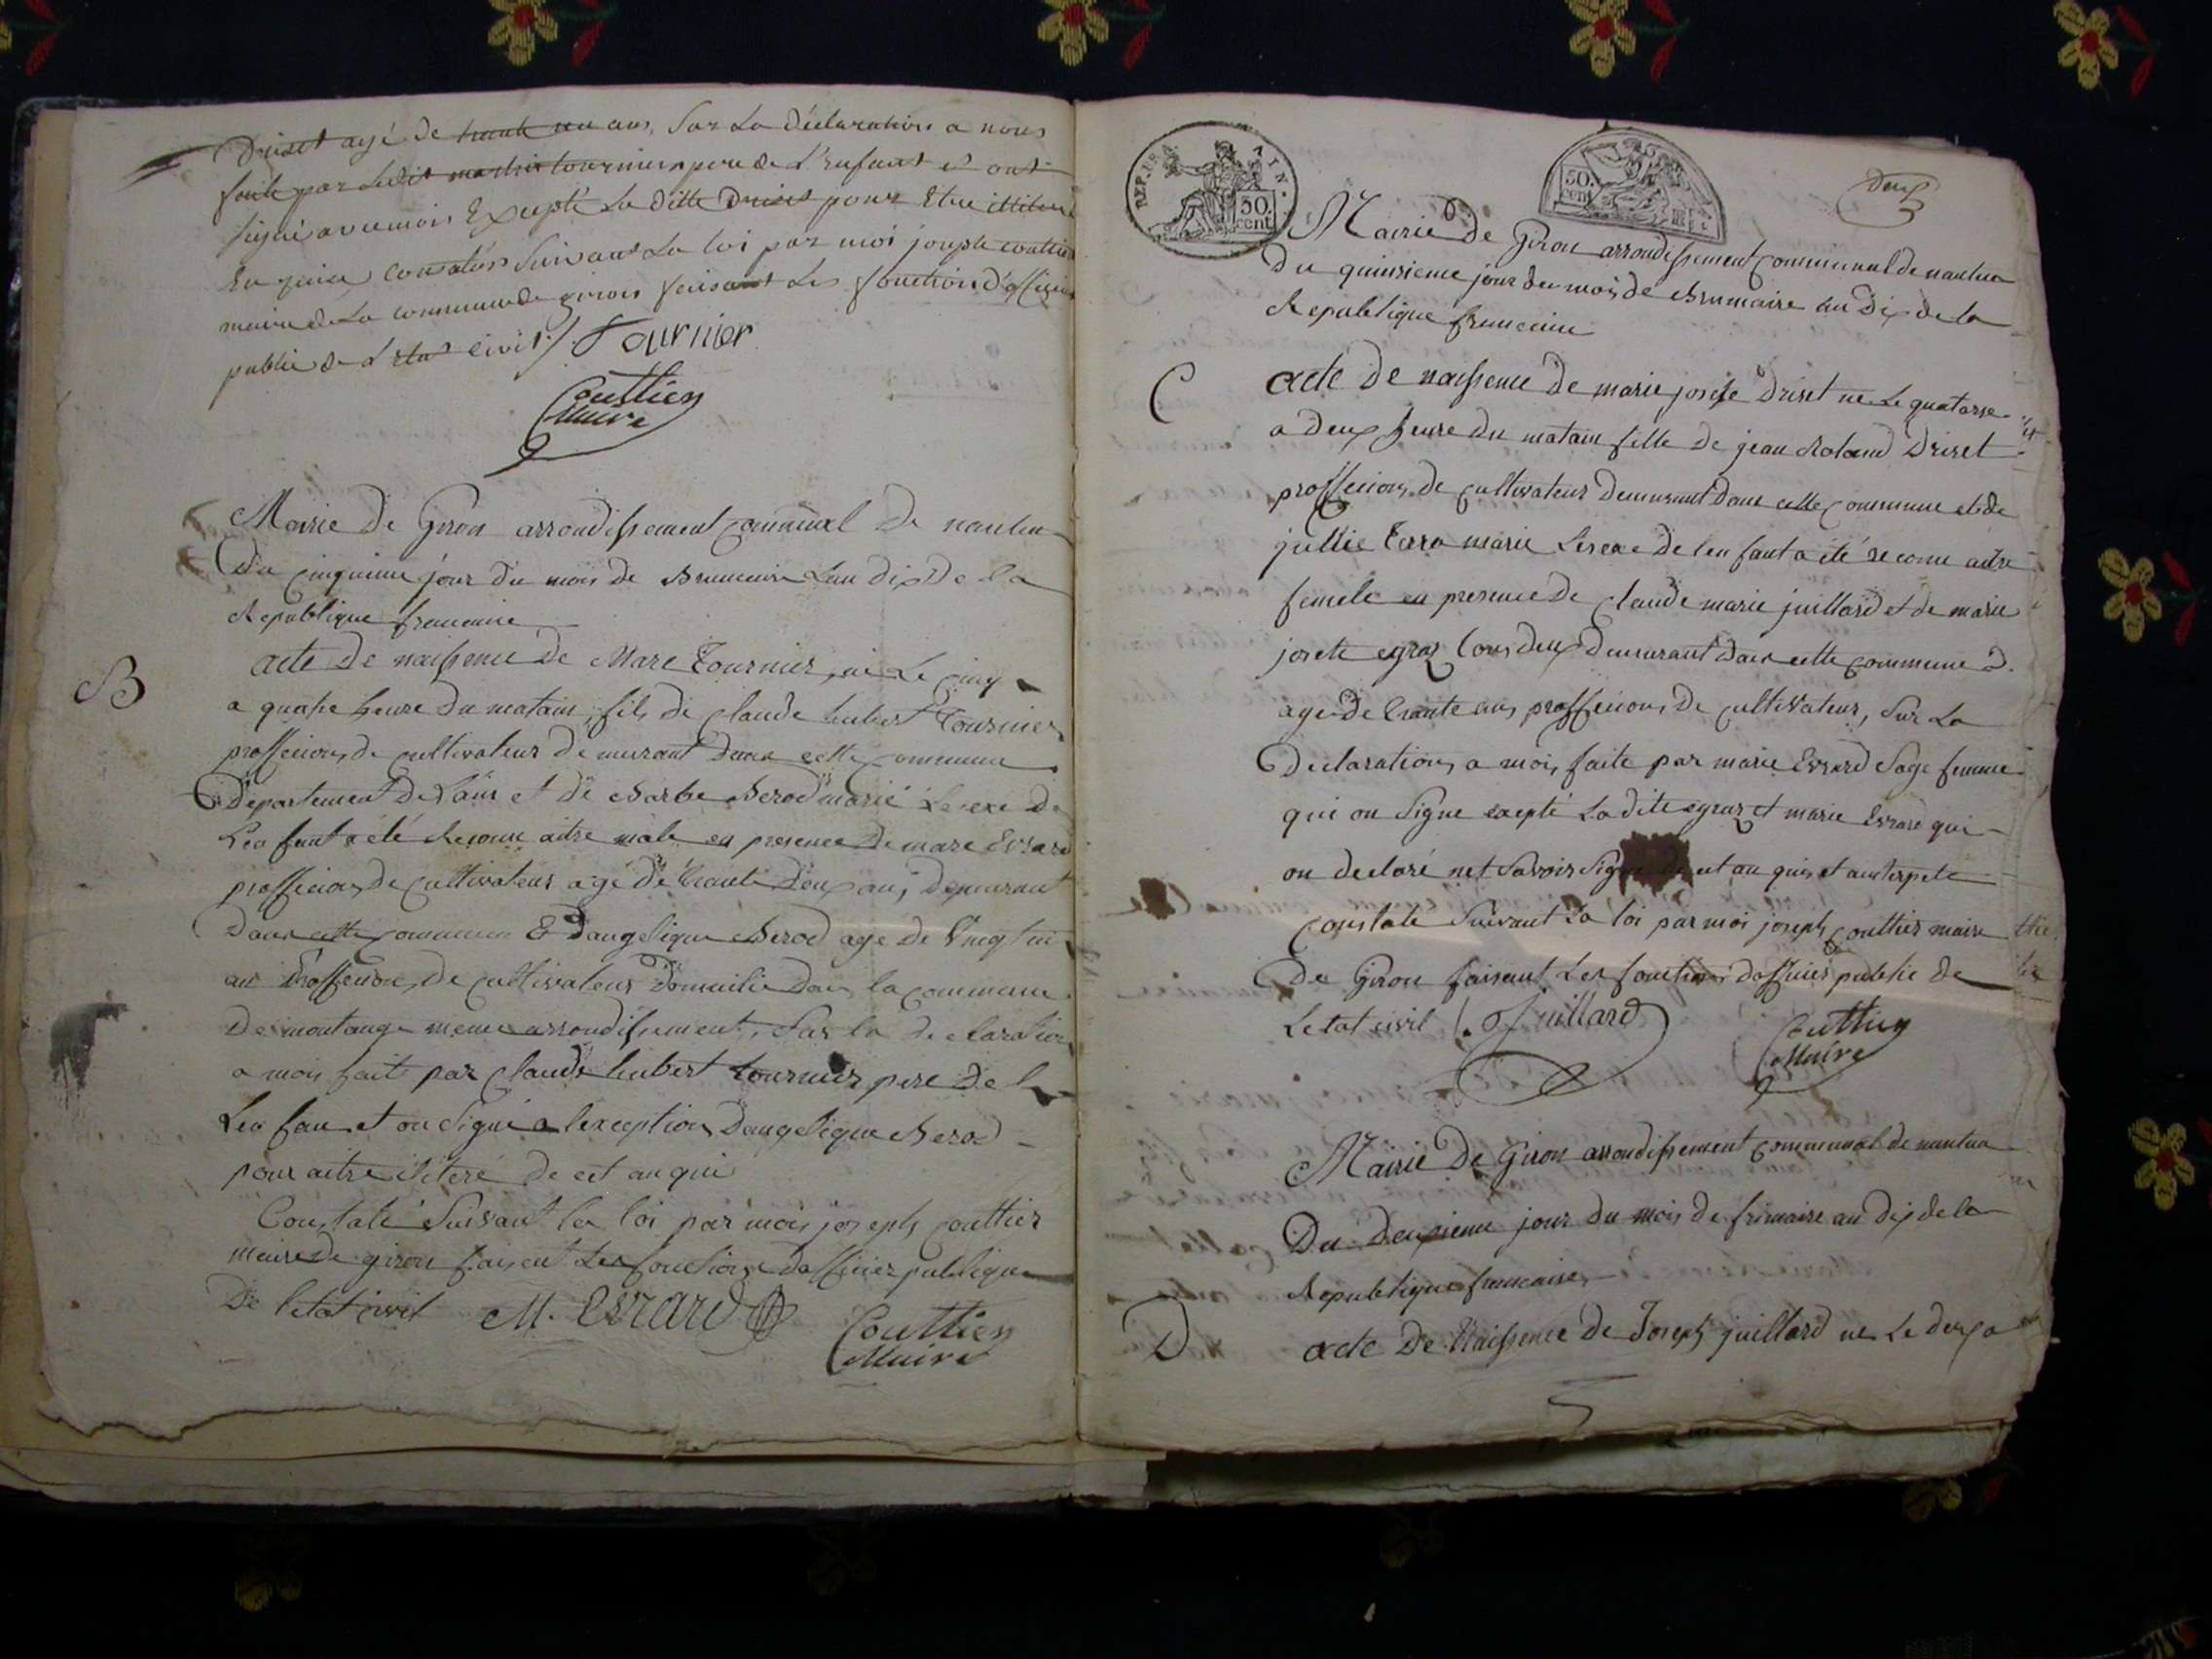 Driset agé de trante un ans, Sur La déclaration a nous
faite par Ledit tournier pere de L'enfant et ont
signé avec moi Excepté La ditte Driset pour Etre
constaté Suivant La loi par moi joseph couttier
maire de La commune de giron faisant Les fonction d'officier
public de L'etat civil / Tournier
Couttier
Maire
Mairie de Giron arrondissement communal de nantua
Du cinquieme jour du mois de Brumaire Lan dix De la
Republique francaise
B
acte De naissence De Marc Tournier, né Le cinq
a quatre heure Du matain, fils de Claude hubert Tournier
proffecion, de cultivateur de murant dans cette commune
Departement de Lain et De Barbe Berod marié Le sexe De
Len fant a été Reconu aitre male en presence De marc Evrard
proffecion, de Cultivateur agé De trante Deux ans, Demurant
Dans cette commune & Dangelique Berod age de Vingt
an Proffecion, de cultivateur Domicilié Dans la commune
De montange meme arrondissement, Sur la declaration
a moi, fait par Claude hubert tournier pere De
Len fan et on Signé a lexception, Dangelique Berod
pour aitre ilitere de cet an qui
Constaté Suivant la loi par moi, joseph couttier
maire de giron faisent Les fonctions Dofficier publique
De letat civil M. EVRARD
Couttier
Maire
REP. FRA
50.
cent
50.
cent
Deux
Mairie de Giron arrondissement communal de nantua
Du quinsieme jour du mois de Brumaire an Dix de la
Republique francaise
C
acte De naissence De marie josete Driset ne Le quatorse
a Deux heure Du matain fille De jean Roland Driset
proffecion, de cultivateur Demurant Dans cette commune et de
jullie Terra marie Le sexe De len fant a été reconu aitre
femele en presence De Claude marie juillard et de marie
josete egraz tous deux Demurant dans cette commune
age de trante ans proffecion, De cultivateur, Sur La
Declaration, a moi, faite par marie Evrard Sage femme
qui on Signe exepté La dite egraz et marie Evrard qui
on declaré net Savoir Signe
constaté Suivant la loi par moi joseph couttier maire
De Giron faisent Les fonctions dofficier public De
Letat civil C. Juillard
Couttier
Maire
Mairie De Giron arrondissement communal de nantua
Du Deuxieme jour Du mois De frimaire an dix de la
Republique francaise,
D
acte De Naissence De Joseph juillard ne Le deux a